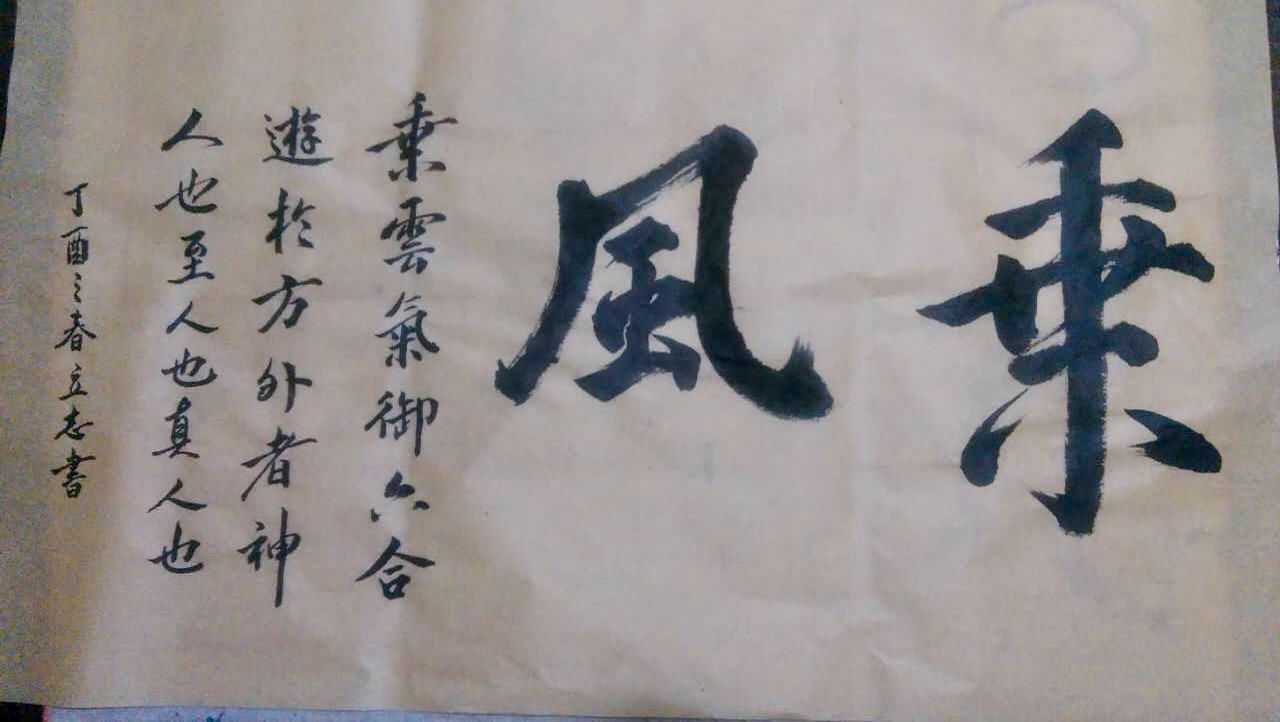 乘風
乘雲氣御六合
遊於方外者神
人也至人也真人也
丁酉之春立志書